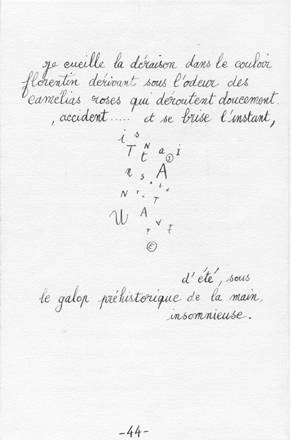 je cueille la déraison dans le couloir
florentin dérivant sous l'odeur des
camélias roses qui déroutent doucement
, accident..... et se brise l'instant,
d'été, sous
le galop préhistorique de la main,
insomnieuse.
-44-